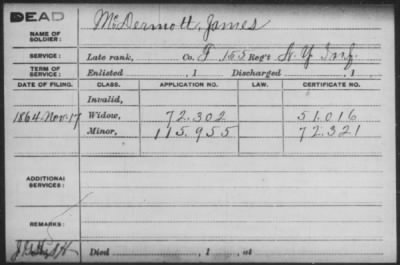 DEAD
NAME OF SOLDIER: McDermott, James
SERVICE: Late rank, Co. F 165 Reg't N.Y Inf.
TERM OF SERVICE: Enlisted , 1 Discharged , 1
DATE OF FILING. CLASS. APPLICATION NO. LAW. CERTIFICATE NO.
Invalid,
1864-Nov-17 Widow, 72.302 51.016
Minor, 115.955 72.321
ADDITIONAL SERVICES:
REMARKS:
Died , 1 , at